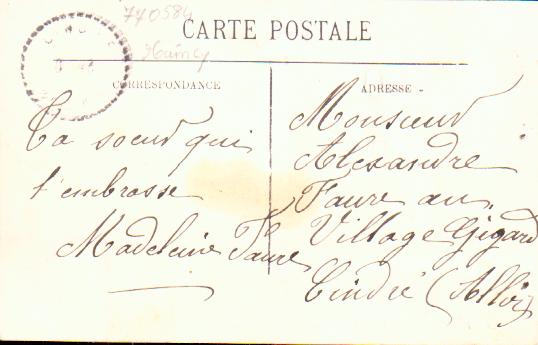 770584
CARTE POSTALE
CORRESPONDANCE
ADRESSE -
Ta soeur qui
t'embrasse
Madeleine Faure
Monsieur
Alexandre
Faure au
Village Gigard
Cindré (Allier)